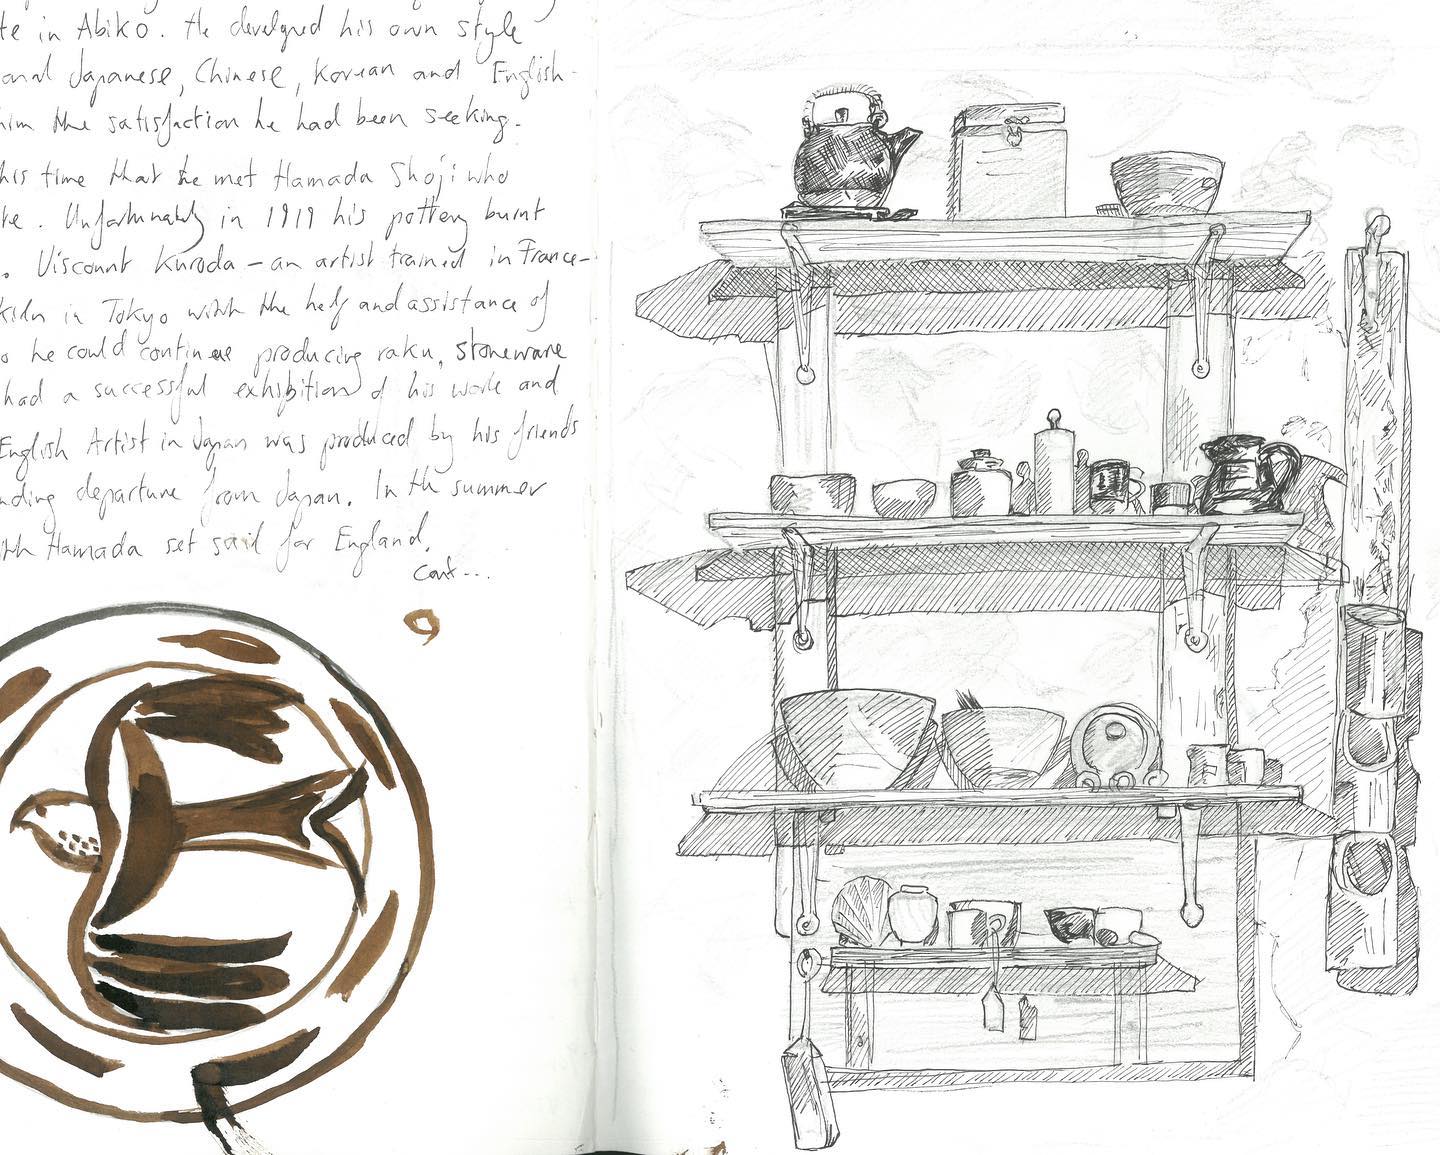 te in Abiko. He developed his own style
onal Japanese, Chinese, Korean and English-
him the satisfaction he had been seeking.
his time that he met Hamada Shoji who
re. Unfortunately in 1919 his pottery burnt
. Viscount Kuroda - an artist trained in France -
kiln in Tokyo with the help and assistance of
o he could continue producing raku, stoneware
had a successful exhibition of his work and
English Artist in Japan was produced by his friends
nding departure from Japan. In the summer
ith Hamada set sail for England.
cont...